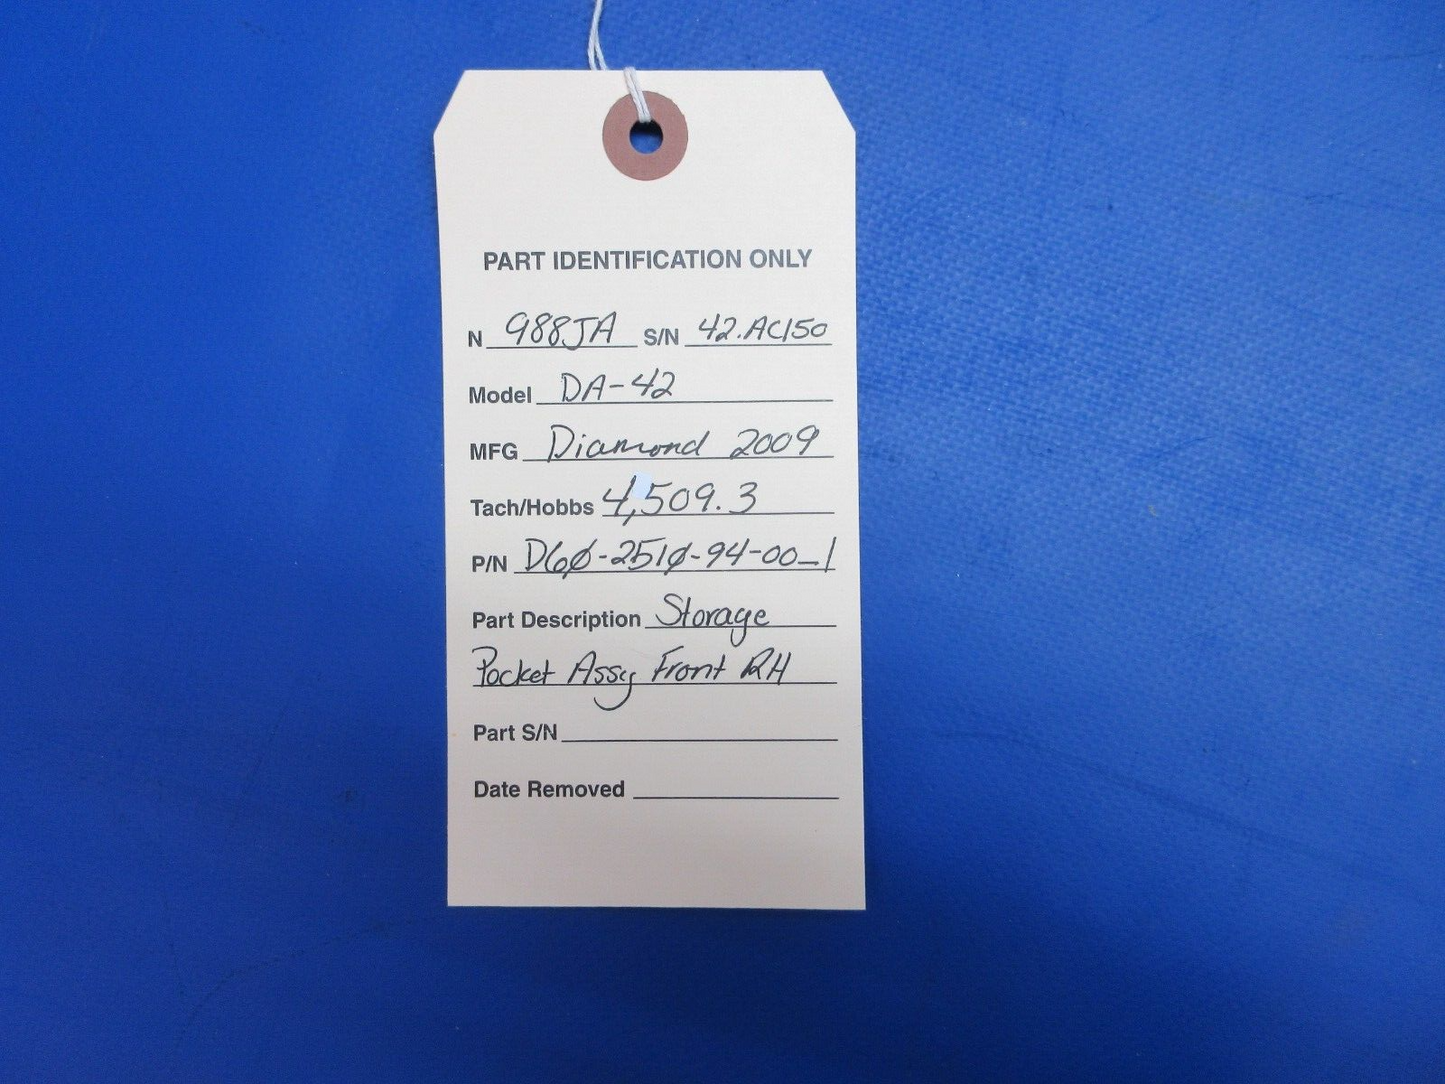 PART IDENTIFICATION ONLY
N 988JA S/N 42.AC150
Model DA-42
MFG Diamond 2009
Tach/Hobbs 4,509.3
P/N D60-2510-94-00_1
Part Description Storage
Pocket Assy Front RH
Part S/N
Date Removed